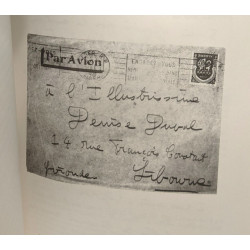 Par Avion
à l'Illustrissime
Denise Duval
14 rue François Constant
Gironde Libourne